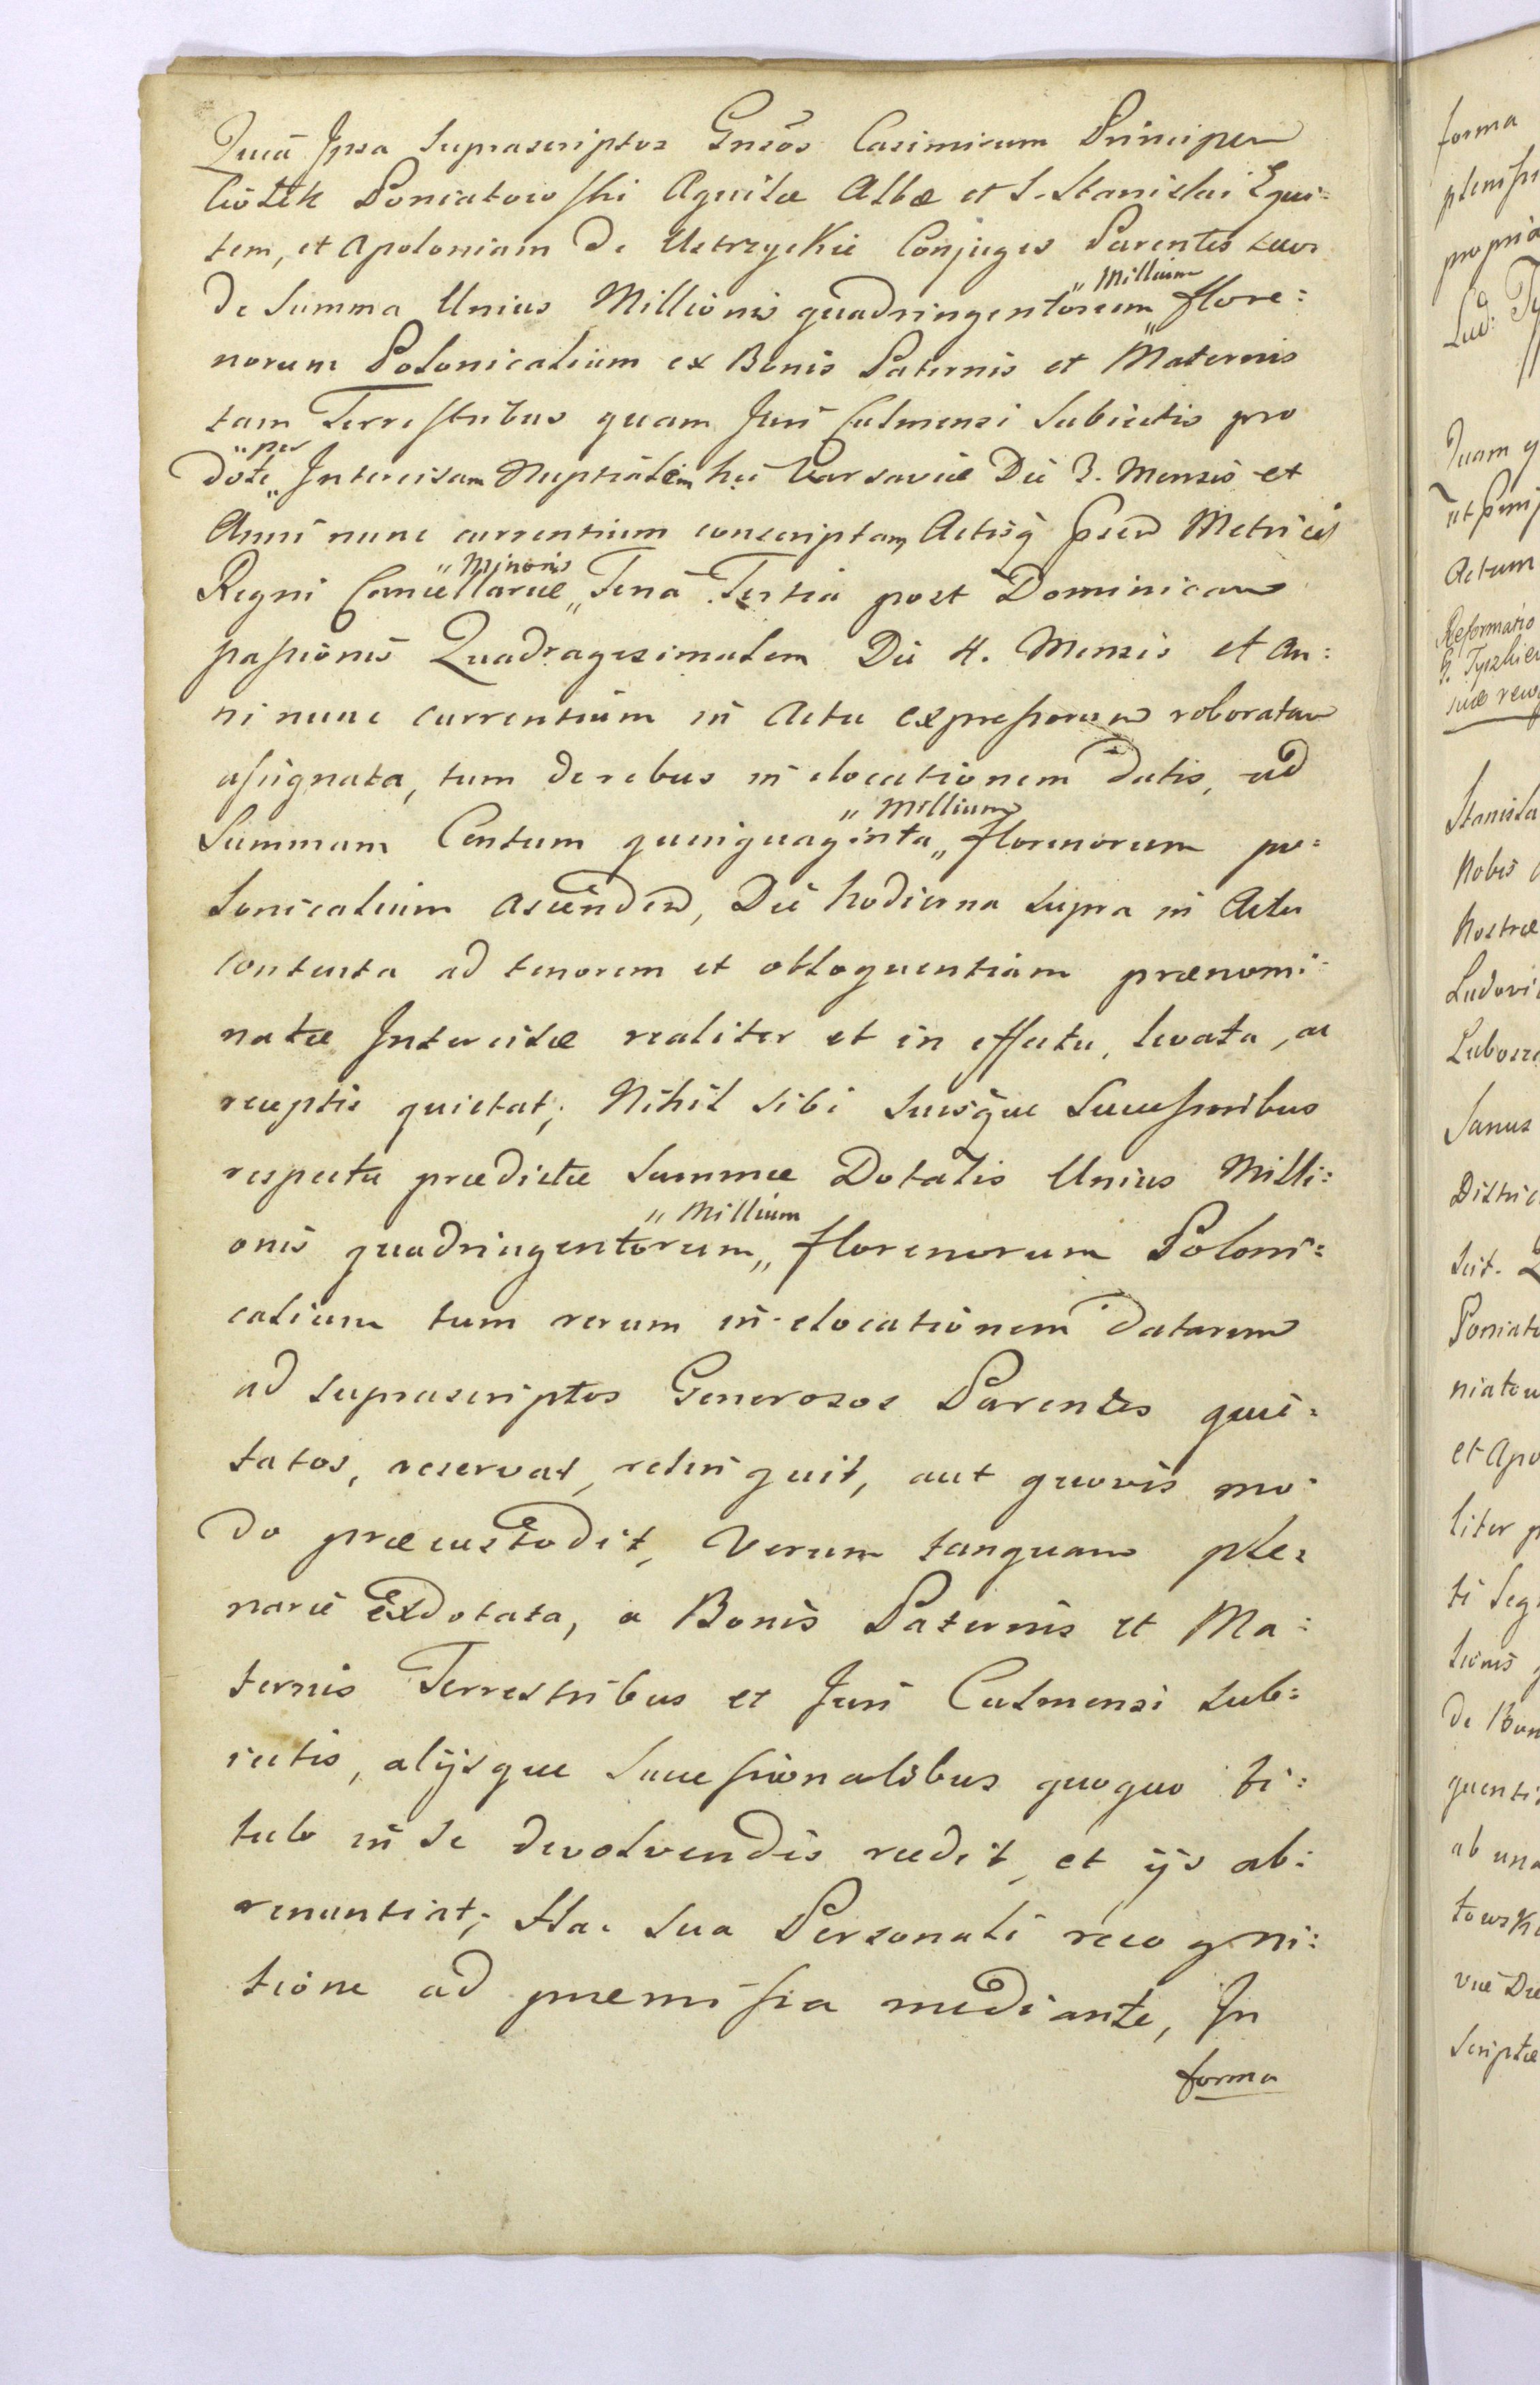 Quia Ipsa Suprascriptos Gnsōs Casimirum Principem
Ciołek Poniatowski Aquilæ Albæ et S. Stanislai Equi:
tem, et Apoloniam de Ustrzyckie Conjuges Parentes suos
de Summa Unius Millionis quadringentorum „ Millium „ flore:
norum Polonicalium ex Bonis Paternis et Maternis
tam Terrestribus quam Juri Culmensi Subiectis pro
dote „ per „ Intercisam Nuptialem hic Varsaviæ Die 3. Mensis et
Anni nunc currentium conscriptam Actisq Psen Metrices
Regni Cancellariæ „ Minoris „ Feria Tertia post Dominicam
passionis Quadragesimalem Die 4. Mensis et An:
ni nunc currentium in Actu expressorum roboratam
assignata, tum de rebus in elocationem datis, ad
Summam Centum quinquaginta „ Millium „ florenorum po:
lonicalium ascenden, Die hodierna supra in Actu
contenta ad tenorem et obloquentiam prænomi:
natæ Intercisæ realiter et in effectu, levata, ac
receptis quietat; Nihil sibi suisque Successoribus
respectu prædictæ Summæ Dotalis Unius Milli:
onis quadringentorum „ Millium „ florenorum Poloni:
calium tum rerum in elocationem datarum
ad suprascriptos Generosos Parentes quie:
tatos, reservat, relinquit, aut quovis mo:
do præcustodit, Verum tanquam ple:
narie Exdotata, a Bonis Paternis et Ma:
ternis Terrestribus et Juri Culmensi sub:
iectis, alijsque Successionalibus quoquo ti:
tulo in se devolvendis recedit, et ijs ab:
renuntiat; Hac Sua Personali recogni:
tione ad præmissa mediante, In
forma
forma
propria
Quam
Actum
Reformatio
Nobis
Nostræ
et Apo
liter
ab una
Scriptæ